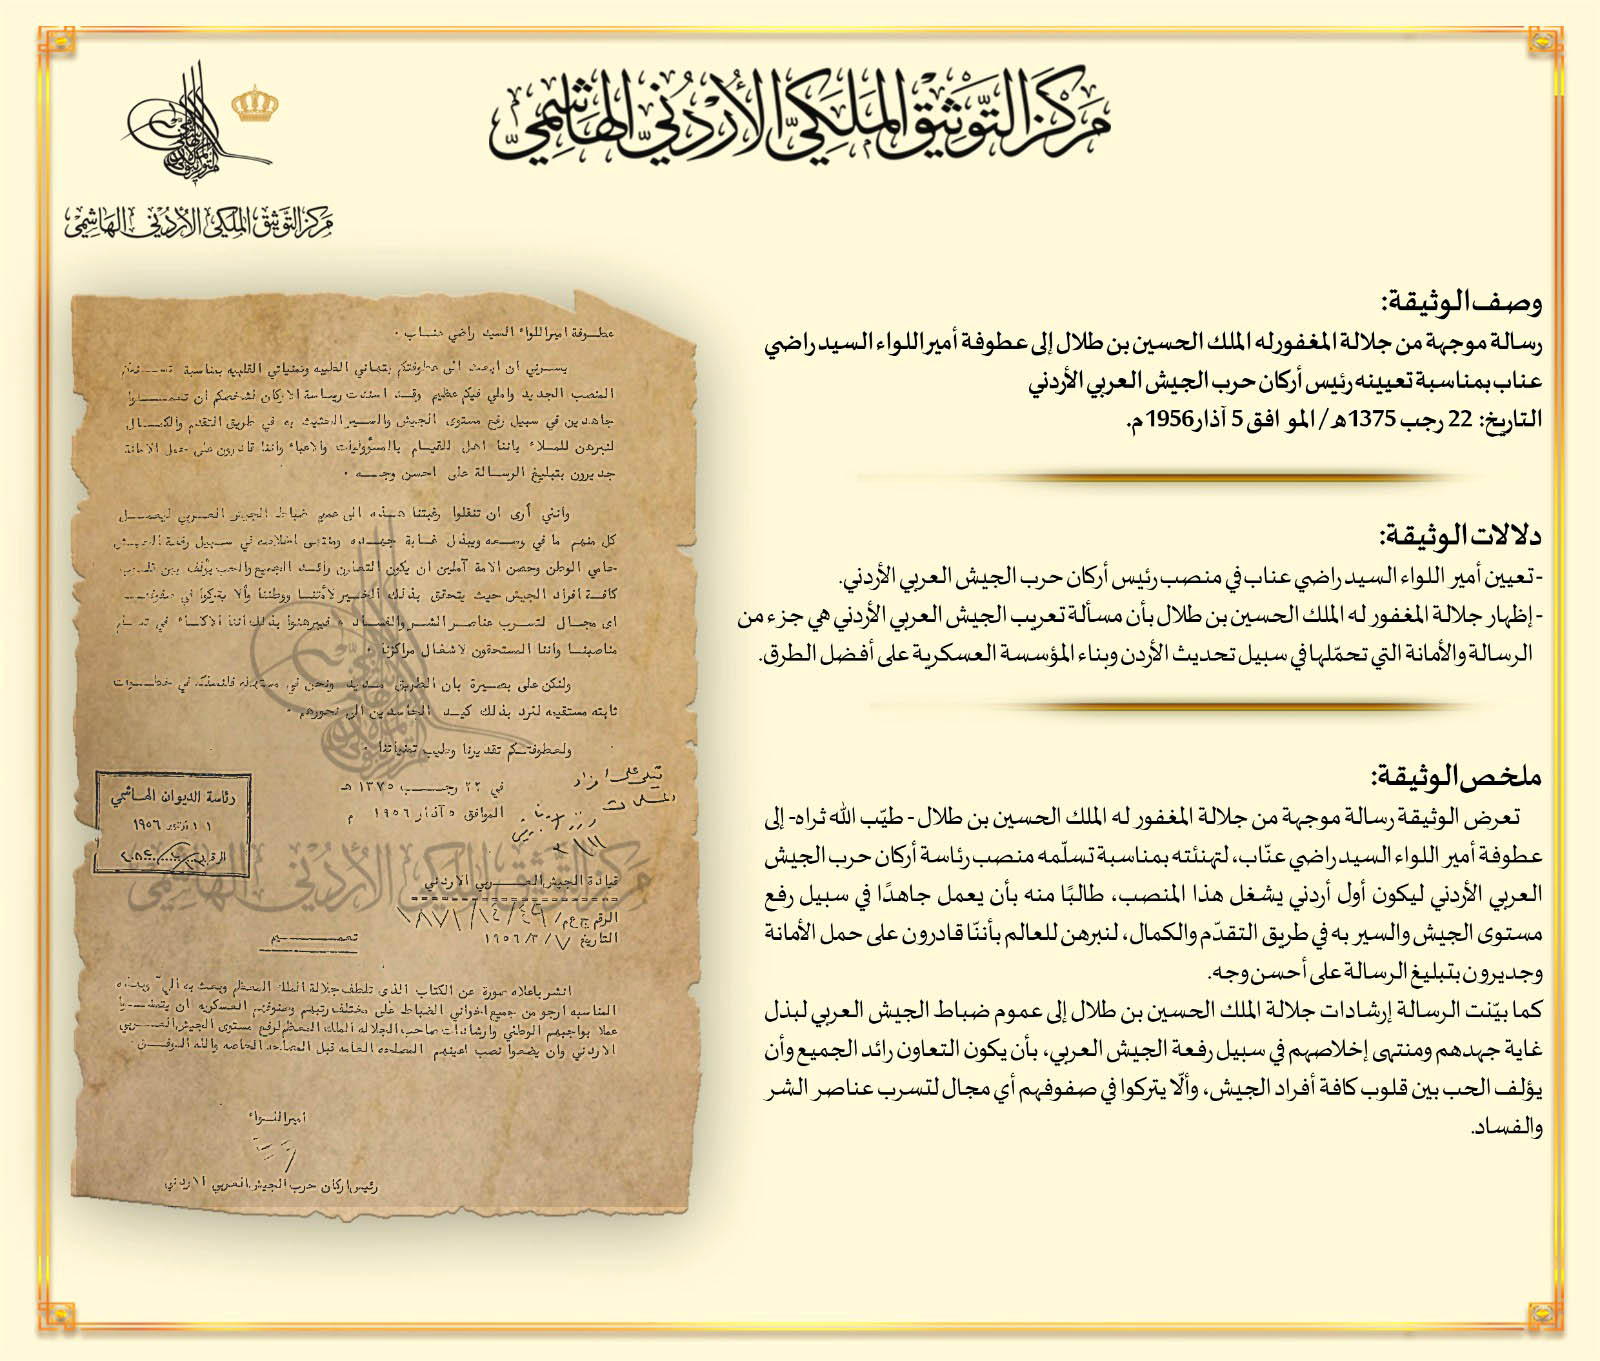 مركز التوثيق الملكي الأردني الهاشمي
مركز التوثيق الملكي الأردني الهاشمي
وصف الوثيقة:
رسالة موجهة من جلالة المغفورله الملك الحسين بن طلال إلى عطوفة أمير اللواء السيد راضي
عناب بمناسبة تعيينه رئيس أركان حرب الجيش العربي الأردني
التاريخ: 22 رجب 1375 هـ / المو افق 5 آذار 1956 م.
دلالات الوثيقة:
- تعيين أمير اللواء السيد راضي عناب في منصب رئيس أركان حرب الجيش العربي الأردني.
- إظهار جلالة المغفور له الملك الحسين بن طلال بأن مسألة تعريب الجيش العربي الأردني هي جزء من
الرسالة والأمانة التي تحمّلها في سبيل تحديث الأردن وبناء المؤسسة العسكرية على أفضل الطرق.
ملخص الوثيقة:
تعرض الوثيقة رسالة موجهة من جلالة المغفور له الملك الحسين بن طلال - طيّب الله ثراه- إلى
عطوفة أمير اللواء السيد راضي عنّاب، لتهنئته بمناسبة تسلّمه منصب رئاسة أركان حرب الجيش
العربي الأردني ليكون أول أردني يشغل هذا المنصب، طالبًا منه بأن يعمل جاهدًا في سبيل رفع
مستوى الجيش والسير به في طريق التقدّم والكمال، لنبرهن للعالم بأننّا قادرون على حمل الأمانة
وجديرون بتبليغ الرسالة على أحسن وجه.
كما بيّنت الرسالة إرشادات جلالة الملك الحسين بن طلال إلى عموم ضباط الجيش العربي لبذل
غاية جهدهم ومنتهى إخلاصهم في سبيل رفعة الجيش العربي، بأن يكون التعاون رائد الجميع وأن
يؤلف الحب بين قلوب كافة أفراد الجيش، وألّا يتركوا في صفوفهم أي مجال لتسرب عناصر الشر
والفساد.
عطوفة امير اللواء السيد راضي عناب ٠
يسرني ان ابعث الى عطوفتكم بتهاني القلبيه وتمنياتي القلبيه بمناسبة
المنصب الجديد واملي فيكم عظيم وقد اسندت رياسة الاركان لشخصكم ان تعملوا
جاهدين في سبيل رفع مستوى الجيش والسير الحثيث به في طريق التقدم والكمال
لنبرهن للملاء باننا اهل للقيام بالمسؤوليات والاعباء واننا قادرون على حمل الامانة
جديرون بتبليغ الرسالة على احسن وجه ٠
وانني أرى ان تنقلوا رغبتنا هذه الى عموم ضباط الجيش العربي ليعمل
كل منهم ما في وسعه ويبذل غاية جهده ومنتهى اخلاصه في سبيل رفعة الجيش
حامي الوطن وحصن الامة آملين ان يكون التعاون رائد الجميع والحب يؤلف بين قلوب
كافة افراد الجيش حيث يتحقق بذلك الخير لأمتنا ووطننا وألا يتركوا في صفوفهم
اى مجال لتسرب عناصر الشر والفساد فيبرهنوا بذلك اننا الاكفاء في تسلم
مناصبنا واننا المستحقون لاشغال مراكزنا ٠
ولنكن على بصيرة بان الطريق مديد ونحن في مستهله فلنسلكه في خطوات
ثابته مستقيمه لنرد بذلك كيد الحاسدين الى نحورهم ٠
ولعطوفتكم تقديرنا وطيب تمنياتنا ٠
في ٢٢ رجب ١٣٧٥ هـ
الموافق ٥ آذار ١٩٥٦ م
رئاسة الديوان الهاشمي
١٩٥٦
الرقم
قيادة الجيش العربي الاردني
الرقم ج ع م / ١٨٧٢/١٤/٤٩
التاريخ ١٩٥٦/٣/٧
تعميم
انشر باعلاه صورة عن الكتاب الذي تلطف جلالة الملك المعظم وبعث به اليّ وبهذه
المناسبه ارجو من جميع اخواني الضباط على مختلف رتبهم وصنوفهم العسكريه ان يتفضلوا
عملا بواجبهم الوطني وارشادات صاحب الجلاله الملك المعظم لرفع مستوى الجيش العربي
الاردني وان يضعوا نصب اعينهم المصلحه العامه قبل المصلحه الخاصه والله الموفق
امير اللواء
رئيس اركان حرب الجيش العربي الاردني